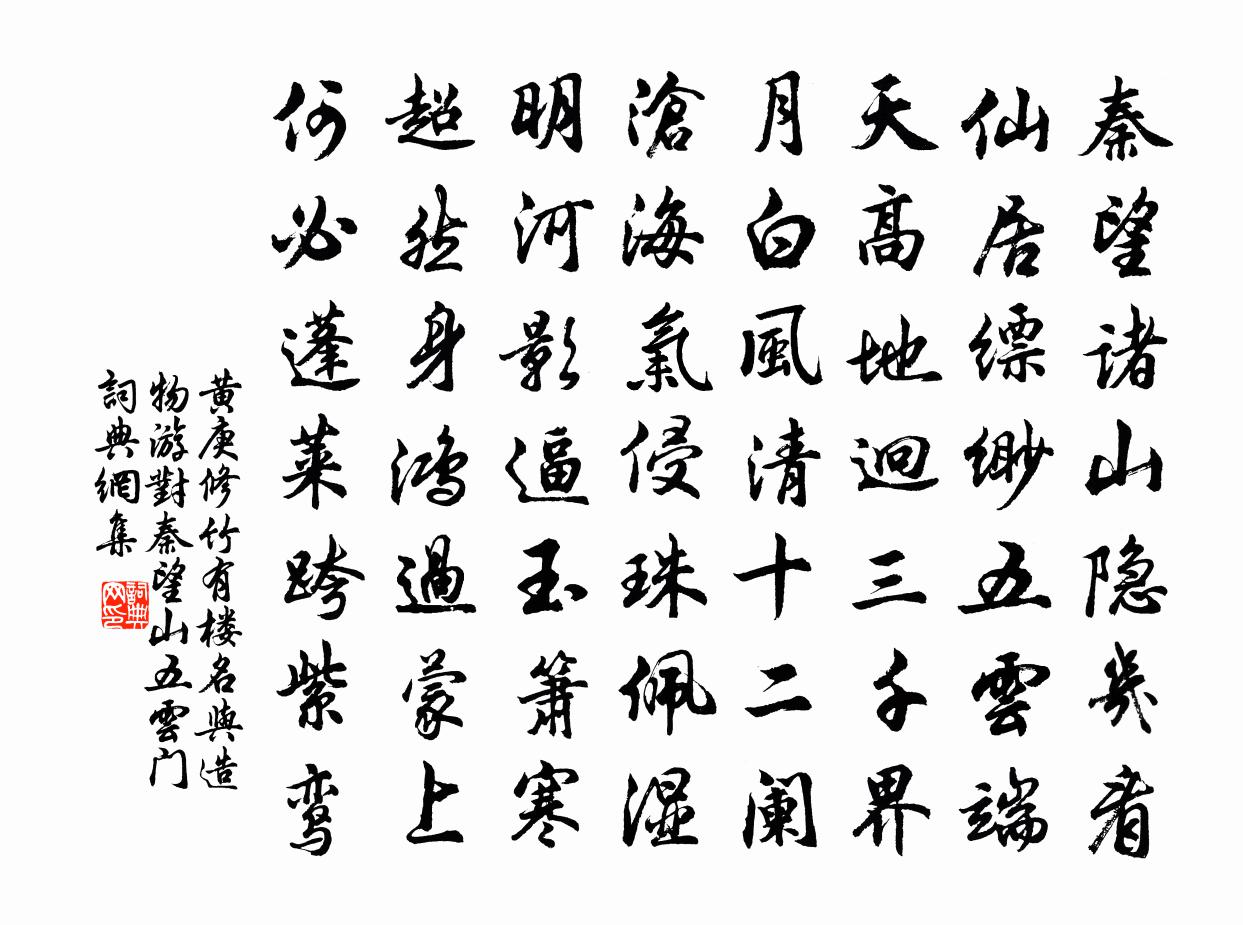 秦望诸山隐幾看
仙居缥缈五雲端
天高地迥三千界
月白風清十二阑
滄海氣侵珠佩湿
明河影逼玉箫寒
超然身鸿過蒙上
何必蓬莱跨紫鸾
黄庚修竹有楼名與造
物游對秦望山五雲门
詞典網集
詞典网印